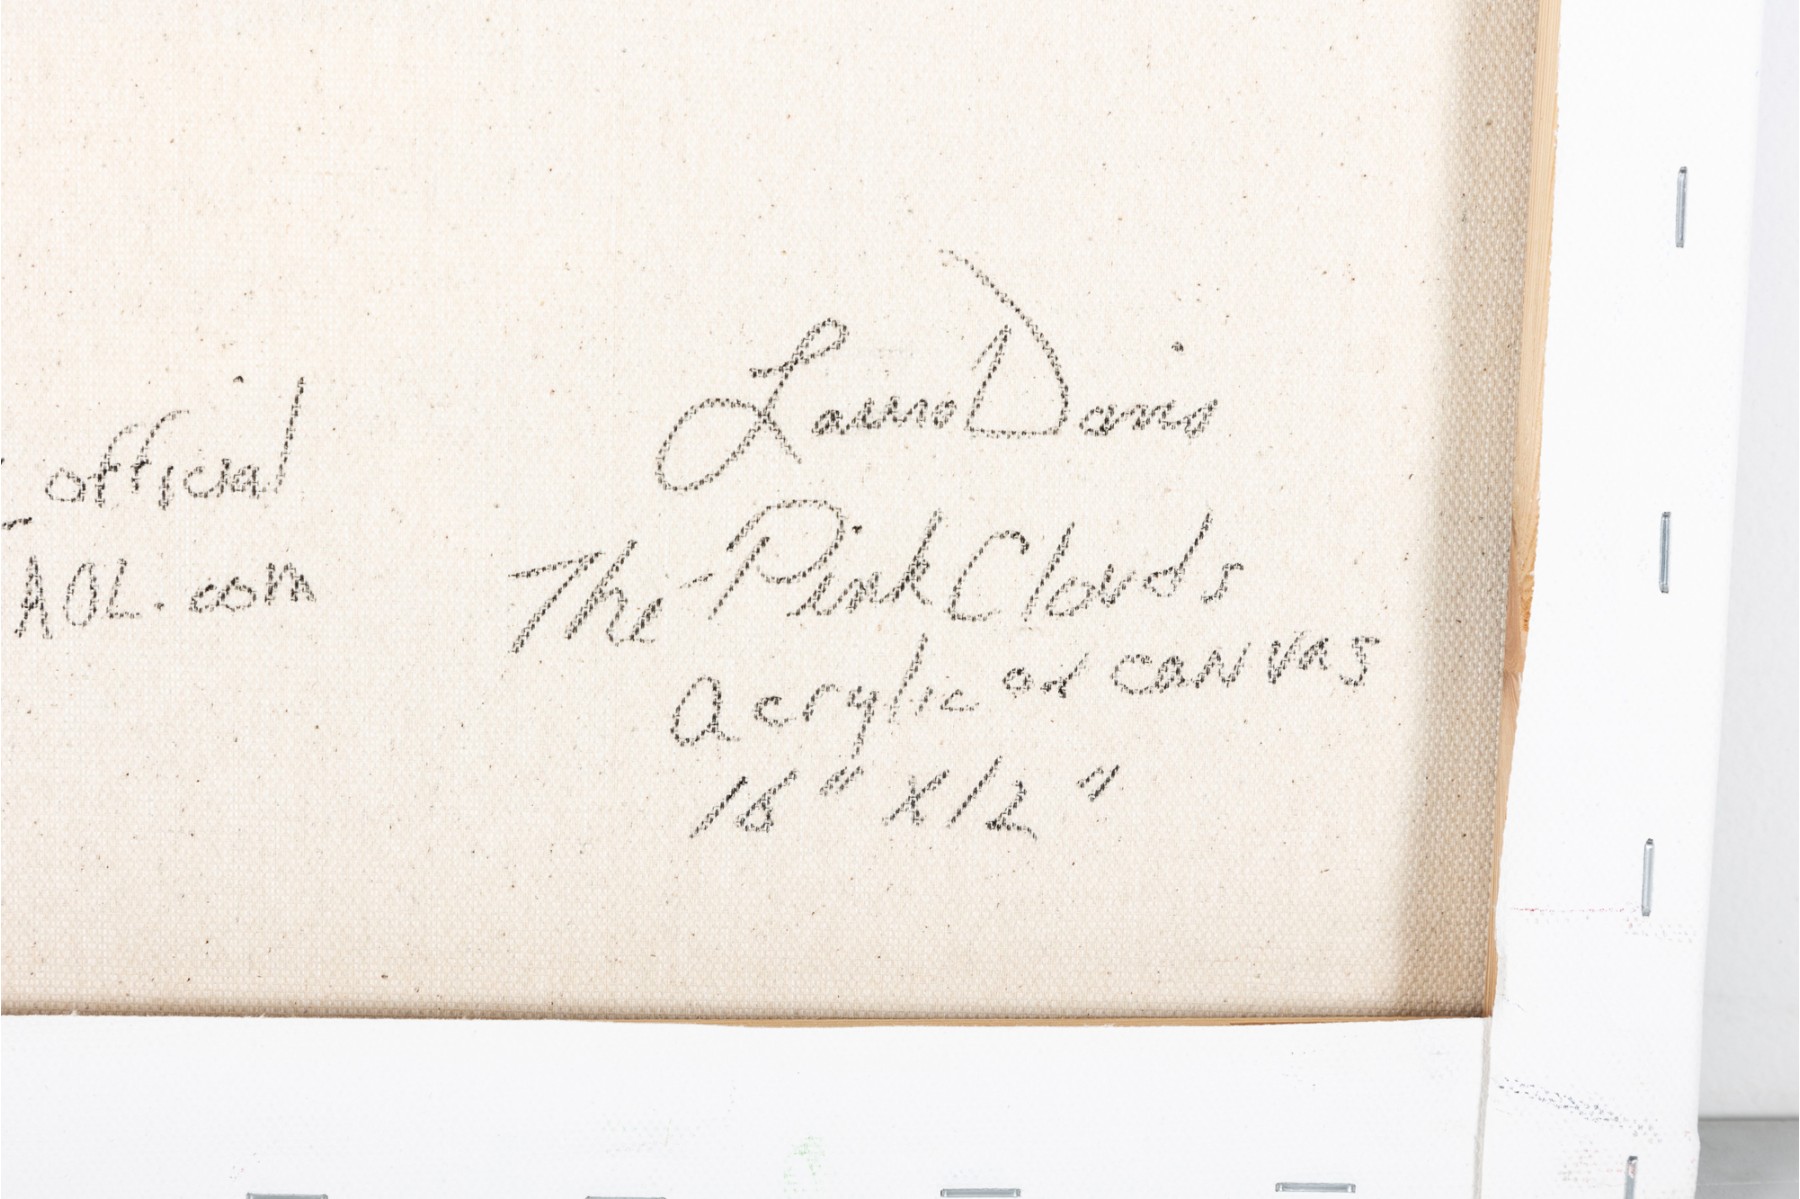 official
AOL.com
Laura Davis
The Pink Clouds
acrylic on canvas
16" X 12"